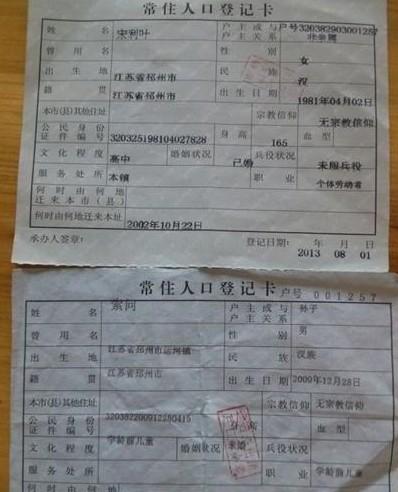 常住人口登记卡
户号320382903001257
姓 名 宋利叶 户主或与户主关系 非亲属
曾用名 性别 女
出生地 江苏省邳州市 民族 汉
籍贯 江苏省邳州市 出生日期 1981年04月02日
本市(县)其他住址 宗教信仰 无宗教信仰
公民身份证件编号 320325198104027828 身高 165 血型
文化程度 高中 婚姻状况 已婚 兵役状况 未服兵役
服务处所 本镇 职业 个体劳动者
何时由何地迁来本市(县)
何时由何地迁来本址 2002年10月22日
承办人签章: 登记日期: 年 月 日
2013 08 01
常住人口登记卡
户号 001257
姓名 户主或与户主关系 孙子
曾用名 性别 男
出生地 江苏省邳州市运河镇 民族 汉族
籍贯 江苏省邳州市 出生日期 2009年12月28日
本市(县)其他住址 宗教信仰 无宗教信仰
公民身份证件编号 身高 血型
文化程度 学龄前儿童 婚姻状况 未婚 兵役状况
服务处所 职业 学龄前儿童
何时由何地